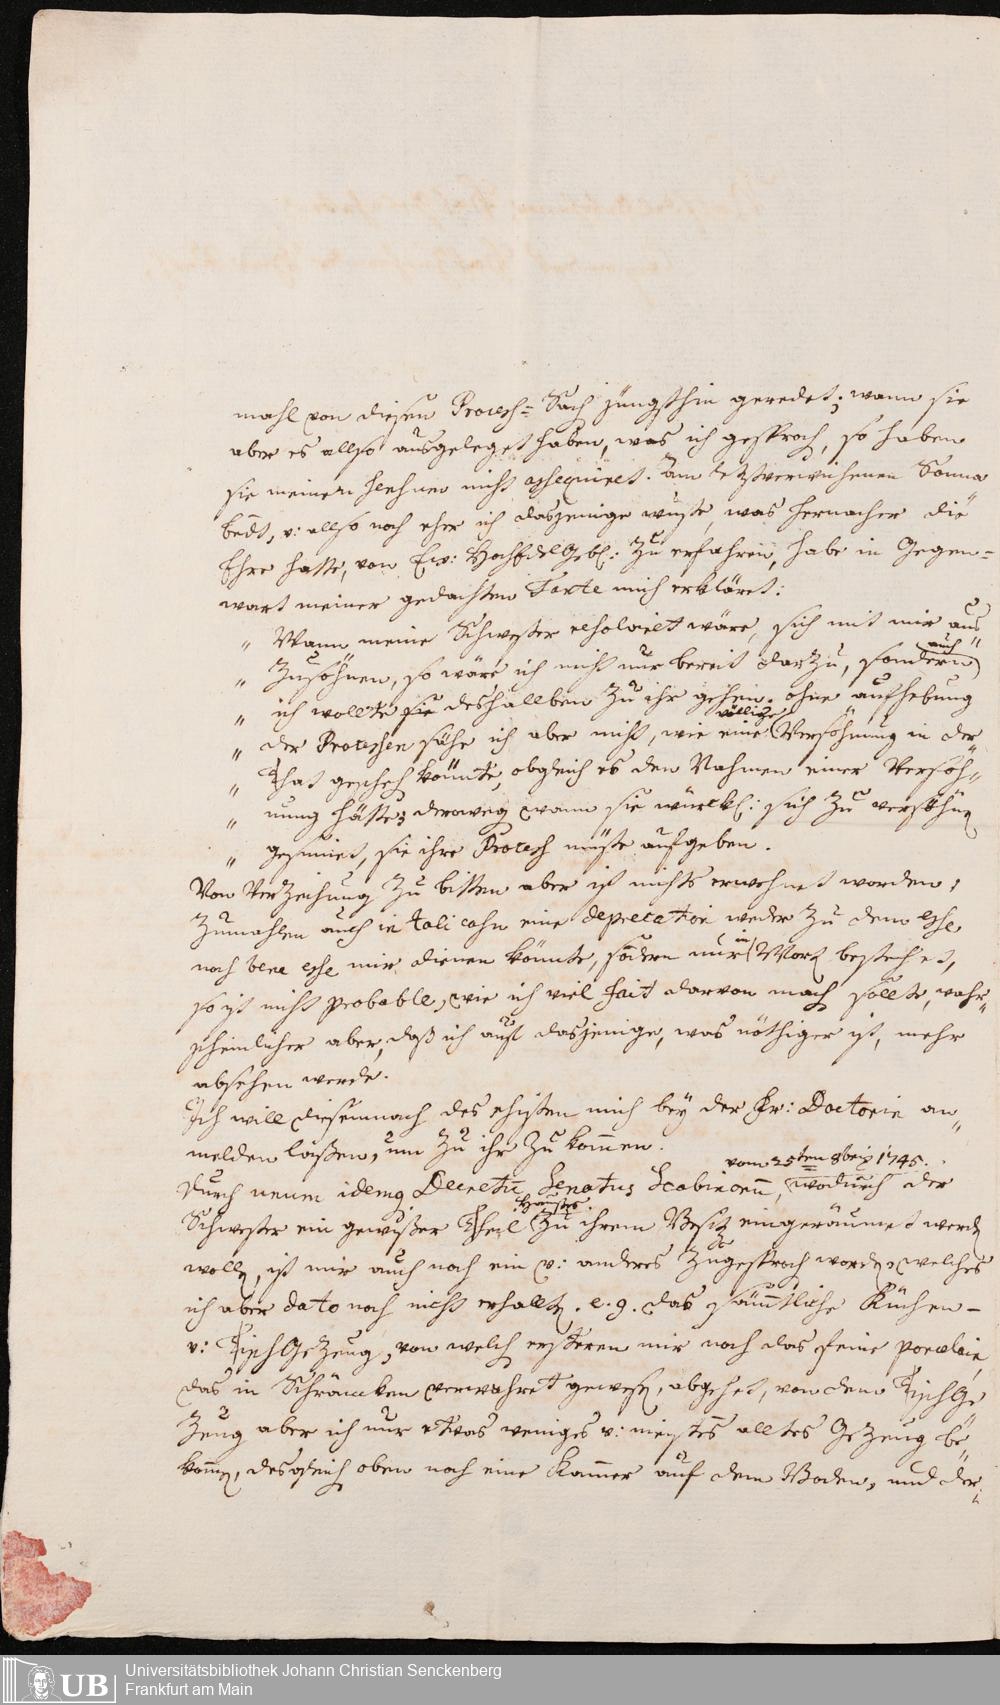 mahl von diesen Process= Sach jüngsthin geredet; wann sie
aber es allso ausgeleget haben, was ich gesproch, so haben
sie meinen nicht assequiret. Am letztverwichenen Sonna
bedt, u: allso noch eher ich dasjenige wuste, was hernacher die
Ehre hatte, von Ew: HochEdelGebl: zu erfahren, habe in Gegen=
wart meiner gedachten Tante mich erkläret:
" Wann meine Schwester resolviret wäre, sich mit mir aus"
" zusöhnen, so wäre ich nicht nur bereit darzu, sondern auch
" ich wollte sie deshallben zu ihr gehen. ohne aufhebung
" der Processen sähe ich aber nicht, wie eine völlige Versöhnung in der
" That gescheh könnte, obgleich es den Nahmen einer Versöh"
" nung hätte; deroweg wann sie würckl: sich zu versöhn
" gesinnet, sie ihre Process müste aufgeben.
Von Verzeihung zu bitten aber ist nichts erwehnet worden,
zumahlen auch in tali casu eine deprecation weder zu dem esse
noch bene esse mir dienen könnte, sodern nur in Wort bestehet,
so ist nicht probable, wie ich viel fait darvon mach sollte, wahr"
scheinlicher aber, daß ich auf dasjenige, was nöthiger ist, mehr
absehen werde.
Ich will diesemnach des ehisten mich bey der Fr: Doctorin an"
melden laßen, um zu ihr zu kommen.
vom 25ten 8bris 1745.
Durch neuen Decretu Senatus Scabinoru, wodurch der
Schwester ein gewißer Theil Haußes zu ihrem Besitz eingeräumet werd
woll, ist mir auch noch ein u: anderes zugesproch word, welches
ich aber dato noch nicht erhallt. e. g. das sämtliche Küchen-
u: TischGezeug, von welch ersteren mir noch das feine porcelain,
das in Schräncken verwahret gewes, abgehet, von dem TischGe
zeug aber ich nur etwas weniges u: meistes alltes Gezeug be"
komm, desgleich oben noch eine Kammer auf dem Boden, und der"
Universitätsbibliothek Johann Christian Senckenberg
UB Frankfurt am Main